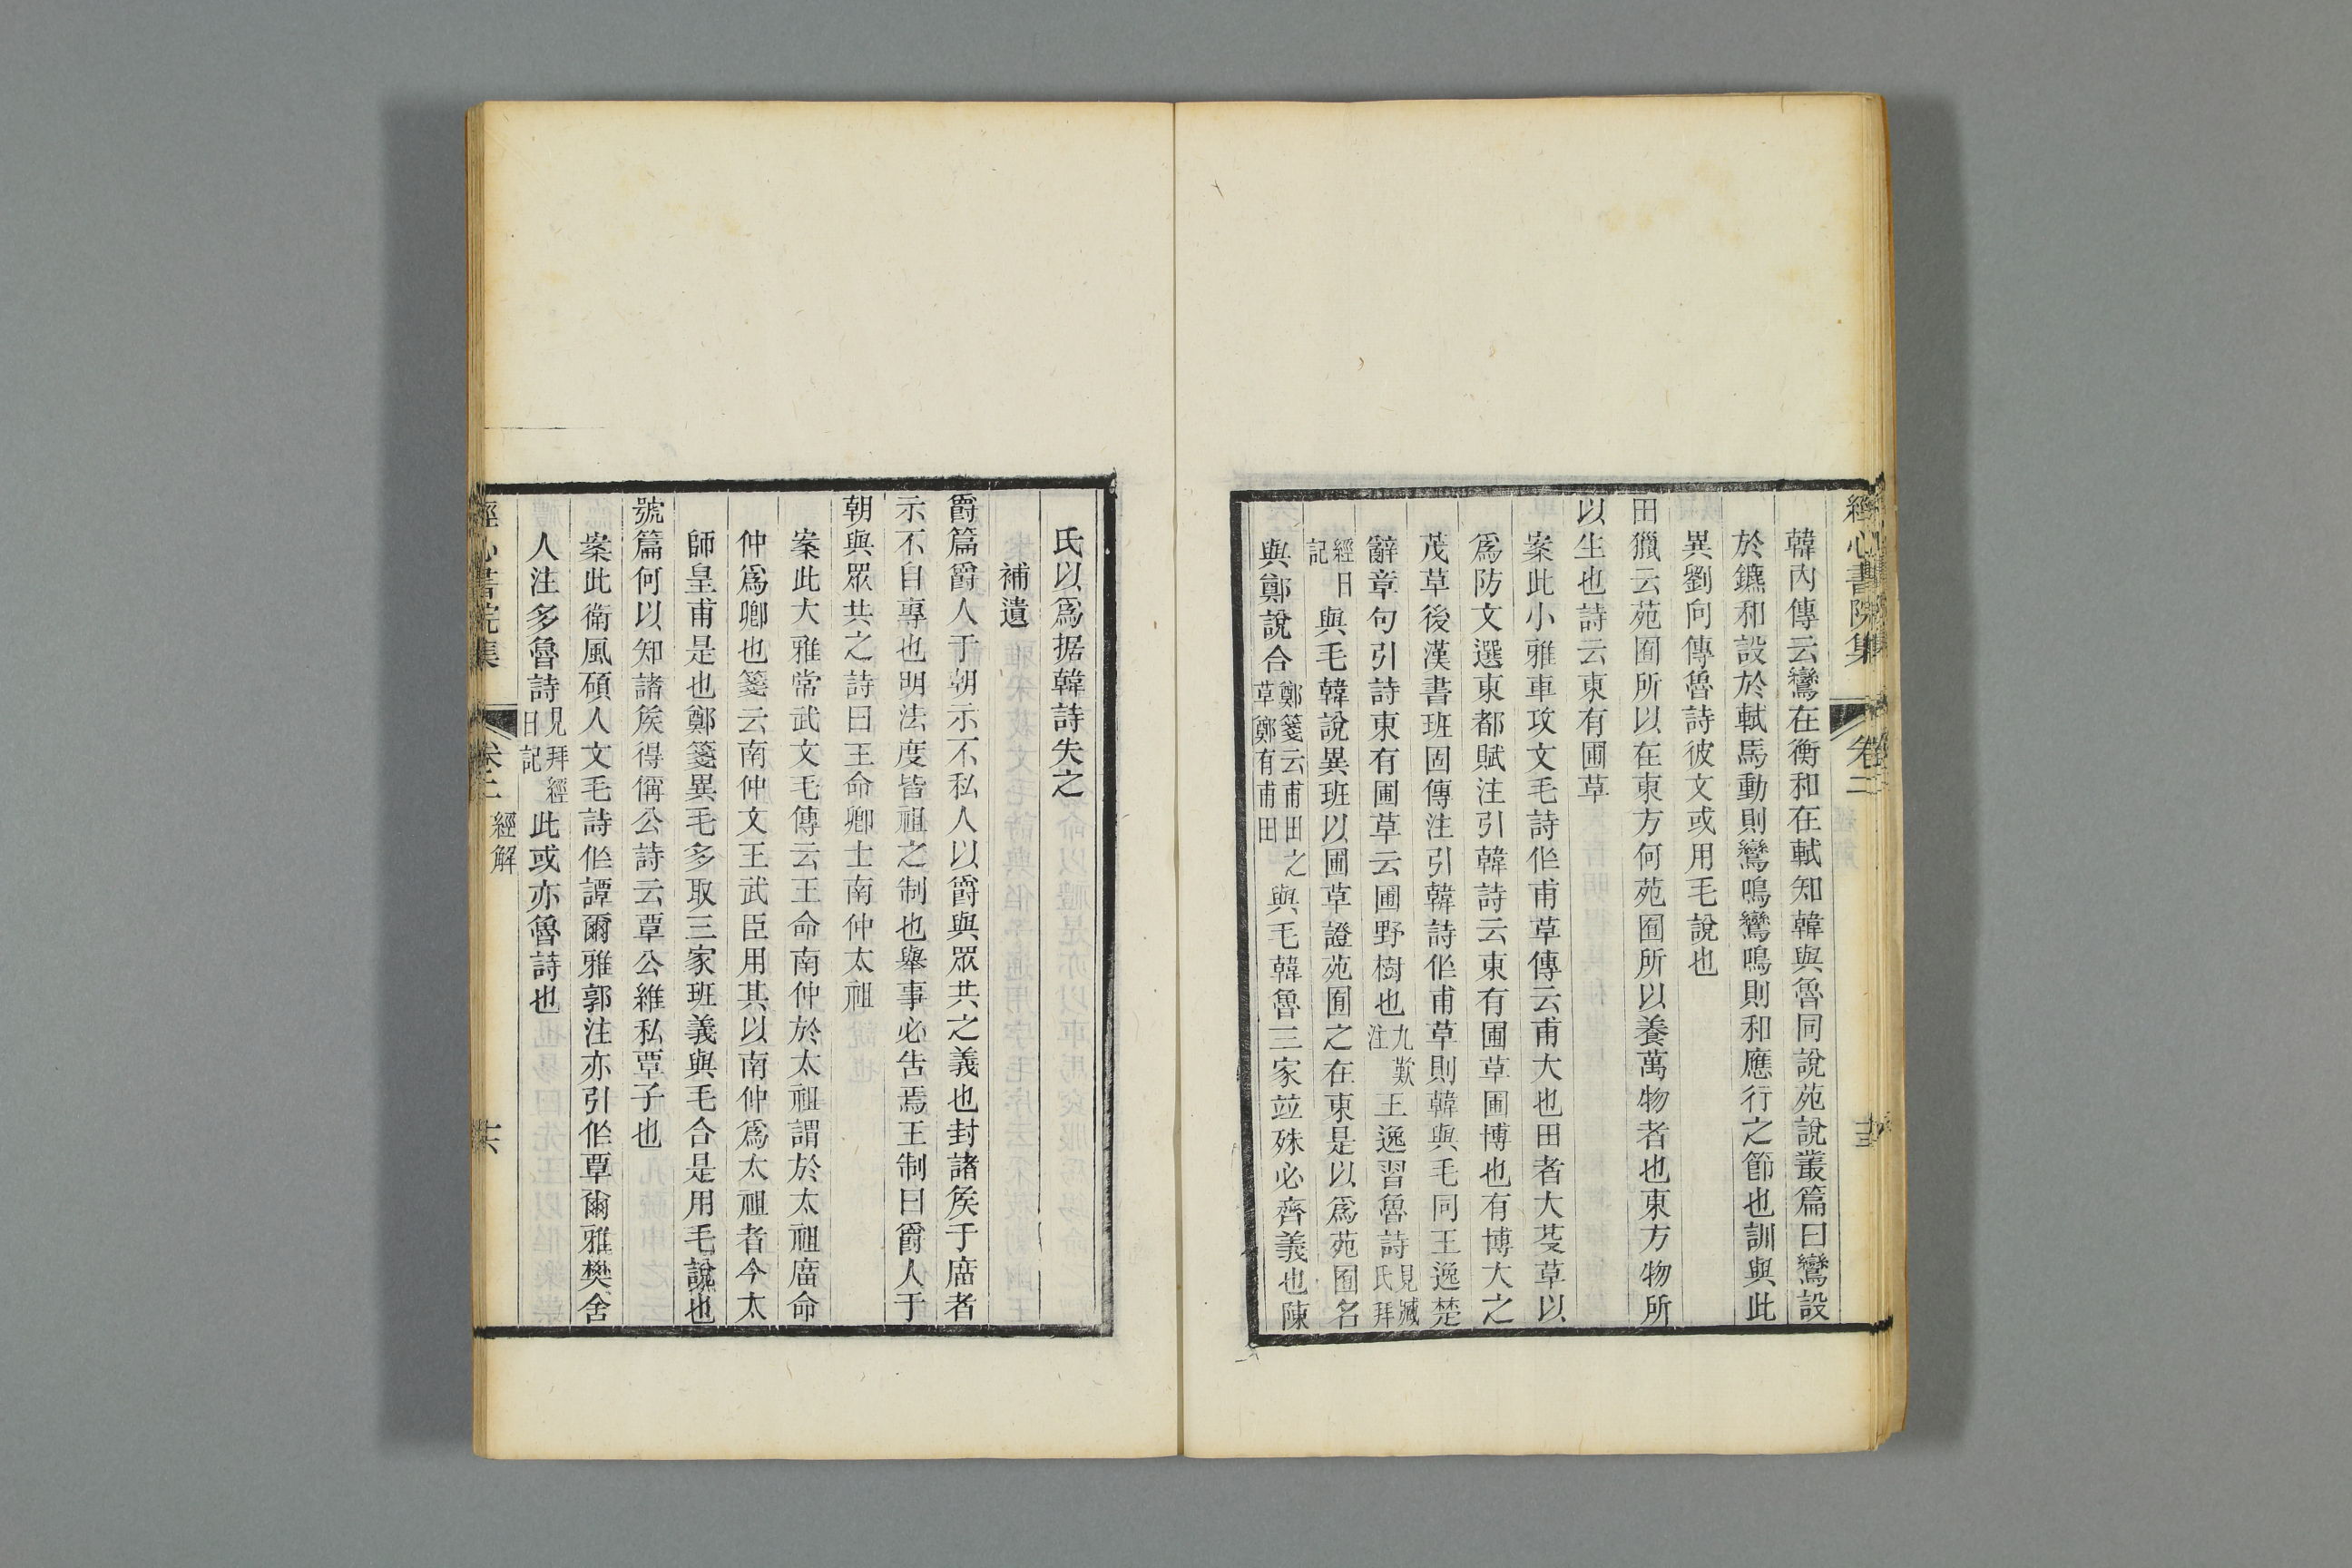 經心書院集 卷二
韓內傳云鸞在衡和在軾知韓與魯同說苑說叢篇曰鸞設
於鑣和設於軾馬動則鸞鳴鸞鳴則和應行之節也訓與此
異劉向傳魯詩彼文或用毛說也
田獵云苑囿所以在東方何苑囿所以養萬物者也東方物所
以生也詩云東有圃草
案此小雅車攻文毛詩作甫草傳云甫大也田者大芟草以
爲防文選東都賦注引韓詩云東有圃草圃博也有博大之
茂草後漢書班固傳注引韓詩作甫草則韓與毛同王逸楚
辭章句引詩東有圃草云圃野樹也九歎注王逸習魯詩見臧氏拜
經日記與毛韓說異班以圃草證苑囿之在東是以爲苑囿名
與鄭說合鄭箋云甫田之草鄭有甫田與毛韓魯三家竝殊必齊義也陳
氏以爲据韓詩失之
補遺
爵篇爵人于朝示不私人以爵與眾共之義也封諸矦于庿者
示不自專也明法度皆祖之制也舉事必告焉王制曰爵人于
朝與眾共之詩曰王命卿士南仲太祖
案此大雅常武文毛傳云王命南仲於太祖謂於太祖庿命
仲爲卿也箋云南仲文王武臣用其以南仲爲太祖者今太
師皇甫是也鄭箋異毛多取三家班義與毛合是用毛說也
號篇何以知諸矦得偁公詩云覃公維私覃子也
案此衛風碩人文毛詩作譚爾雅郭注亦引作覃爾雅樊舍
人注多魯詩見拜經日記此或亦魯詩也
經心書院集 卷二 經解